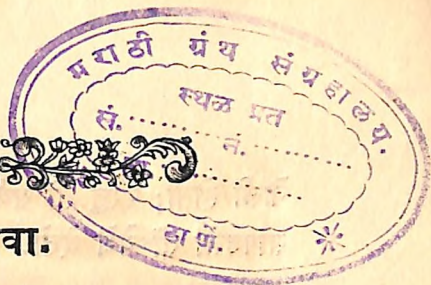 मराठी ग्रंथ संग्रहालय.
स्थळ प्रत
सं. ........... नं. ...........
ठाणें.
वा.